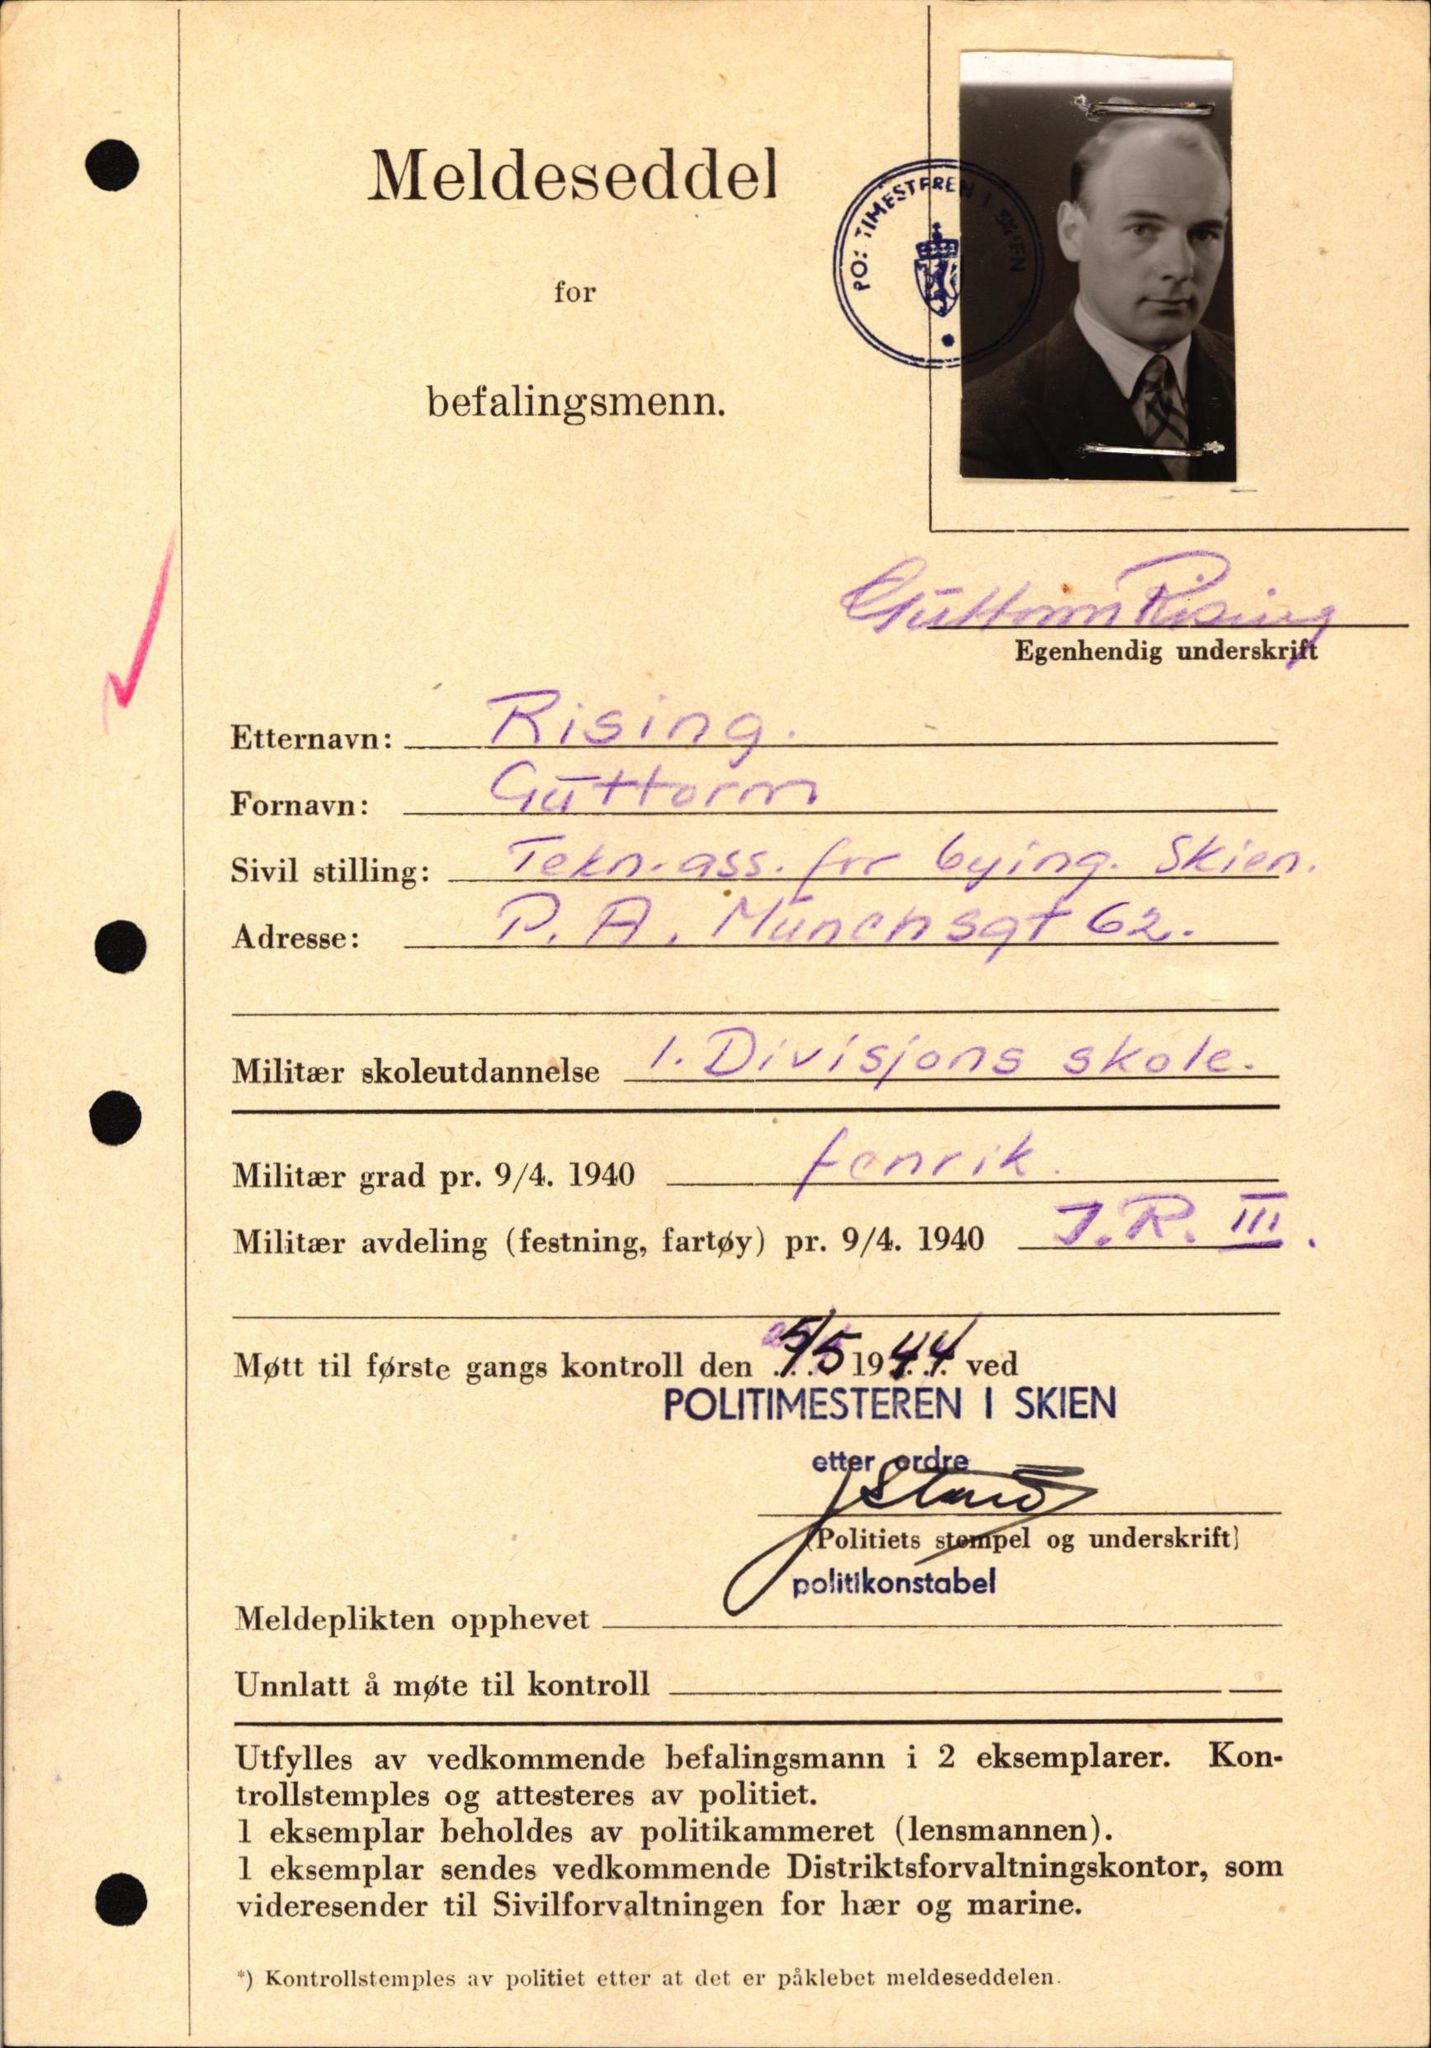 Meldeseddel
for
befalingsmenn.
POLITIMESTEREN I SKIEN
Guttorm Rising
Egenhendig underskrift
Etternavn: Rising.
Fornavn: Guttorm
Sivil stilling: Tekn. ass. for bying. Skien.
Adresse: P. A. Munchsgt 62.
Militær skoleutdannelse 1. Divisjons skole.
Militær grad pr. 9/4. 1940 fenrik.
Militær avdeling (festning, fartøy) pr. 9/4. 1940 I.R. III.
Møtt til første gangs kontroll den 5/5 1944 ved
POLITIMESTEREN I SKIEN
etter ordre
(Politiets stempel og underskrift)
politikonstabel
Meldeplikten opphevet
Unnlatt å møte til kontroll
Utfylles av vedkommende befalingsmann i 2 eksemplarer. Kon-
trollstemples og attesteres av politiet.
1 eksemplar beholdes av politikammeret (lensmannen).
1 eksemplar sendes vedkommende Distriktsforvaltningskontor, som
videresender til Sivilforvaltningen for hær og marine.
*) Kontrollstemples av politiet etter at det er påklebet meldeseddelen.